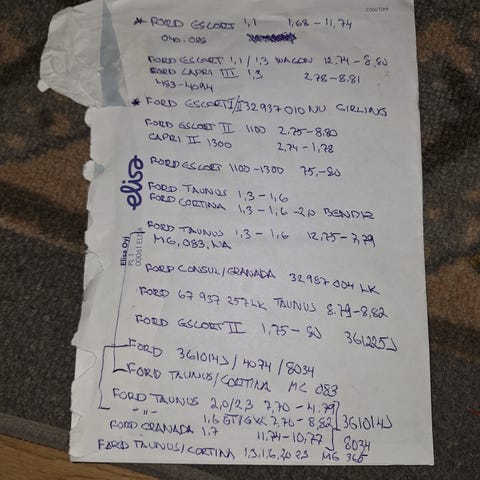 * FORD ESCORT 1,1 1,68 - 11,74
040.085
FORD ESCORT 1,1 / 1,3 WAGON 12.74 - 8,80
FORD CAPRI III 1.3 2.78 - 8.81
483-4094
* FORD ESCORT I/II 32937010 NU GIRLING
FORD ESCORT II 1100 2.75-8.80
CAPRI II 1300 2,74 - 1,78
FORD ESCORT 1100-1300 75,-80
FORD TAUNUS 1.3 - 1,6
FORD CORTINA 1,3 - 1,6 - 2,0 BENDIX
FORD TAUNUS 1.3 - 1.6 12,75 - 7,79
MG, 083, NA
FORD CONSUL/GRANADA 32987 004 LK
FORD 67 937 257 LK TAUNUS 8.79-8,82
FORD ESCORT II 1,75 - 80 361225J
FORD 361014J / 4074 / 8034
FORD TAUNUS/CORTINA MG 083
FORD TAUNUS 2,0/2,3 7,70 - 4.79
-"- 1,6 GT/GXL 2,70 - 8,82 361014J
FORD GRANADA 1.7 11.74-10,77 8034
FORD TAUNUS/CORTINA 1,3,1,6,20 23 MG 365
elisa
Elisa Oyj
PL 1
00061 ELISA